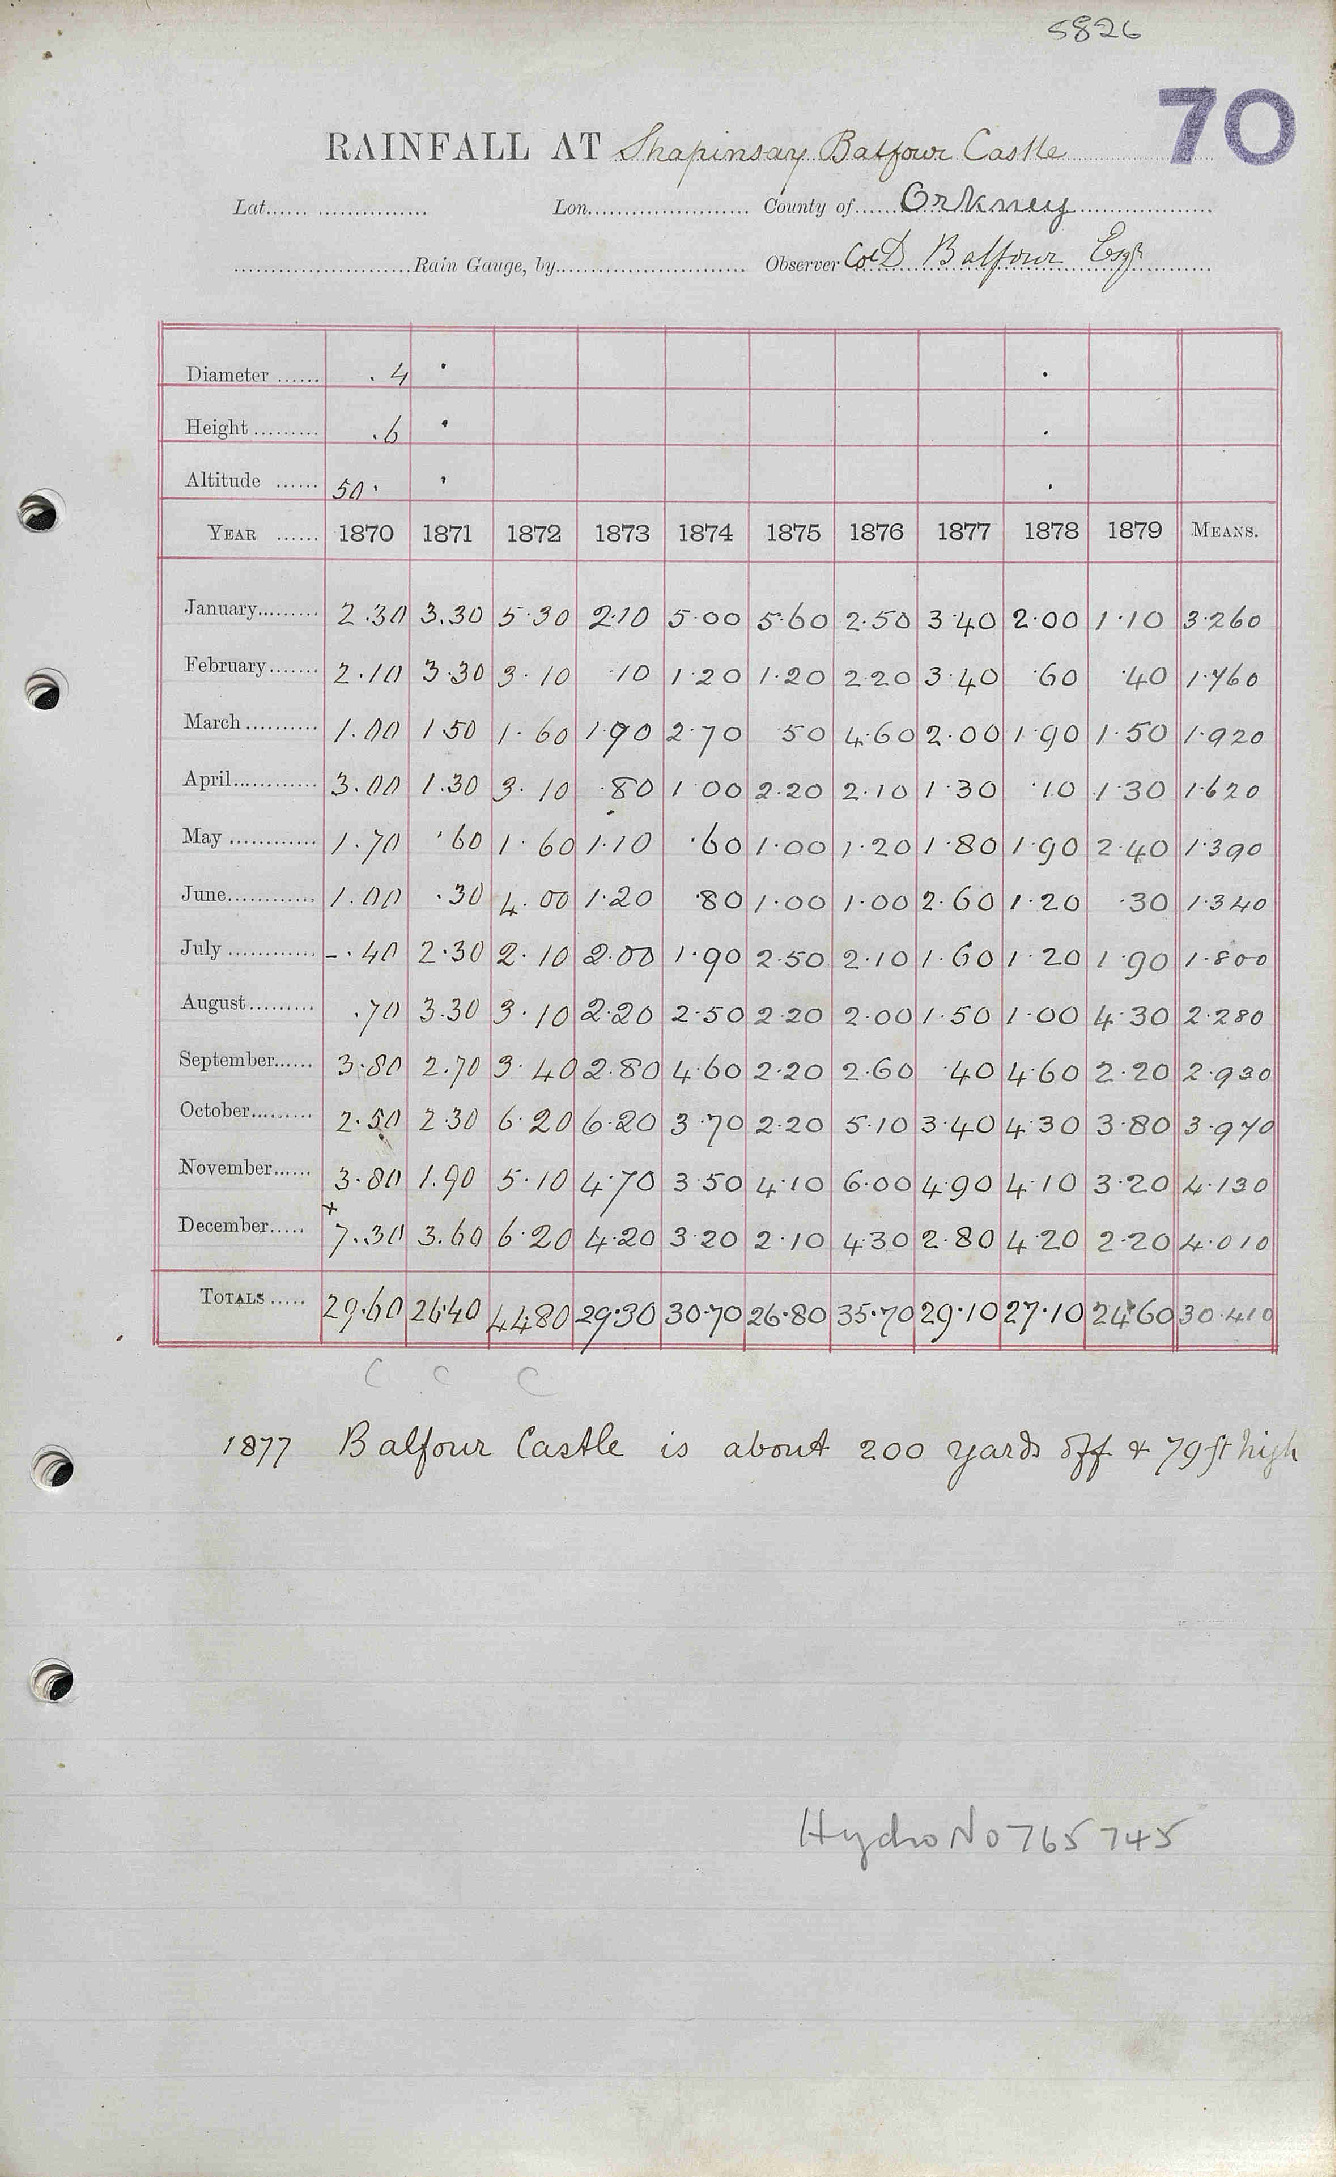 5826
70
RAINFALL AT Shapinsay Balfour Castle
Lat. Lon. County of Orkney
Rain Gauge, by Observer Col D Balfour Esqr
Diameter .4 · ·
Height .6 · ·
Altitude 50· · ·
YEAR 1870 1871 1872 1873 1874 1875 1876 1877 1878 1879 MEANS.
January 2.30 3.30 5.30 2.10 5.00 5.60 2.50 3.40 2.00 1.10 3.260
February 2.10 3.30 3.10 .10 1.20 1.20 2.20 3.40 .60 .40 1.760
March 1.00 1.50 1.60 1.90 2.70 .50 4.60 2.00 1.90 1.50 1.920
April 3.00 1.30 3.10 .80 1.00 2.20 2.10 1.30 .10 1.30 1.620
May 1.70 .60 1.60 1.10 .60 1.00 1.20 1.80 1.90 2.40 1.390
June 1.00 .30 4.00 1.20 .80 1.00 1.00 2.60 1.20 .30 1.340
July -.40 2.30 2.10 2.00 1.90 2.50 2.10 1.60 1.20 1.90 1.800
August .70 3.30 3.10 2.20 2.50 2.20 2.00 1.50 1.00 4.30 2.280
September 3.80 2.70 3.40 2.80 4.60 2.20 2.60 .40 4.60 2.20 2.930
October 2.50 2.30 6.20 6.20 3.70 2.20 5.10 3.40 4.30 3.80 3.970
November 3.80 1.90 5.10 4.70 3.50 4.10 6.00 4.90 4.10 3.20 4.130
December x 7.30 3.60 6.20 4.20 3.20 2.10 4.30 2.80 4.20 2.20 4.010
TOTALS 29.60 26.40 44.80 29.30 30.70 26.80 35.70 29.10 27.10 24.60 30.410
C C C
1877 Balfour Castle is about 200 yards off & 79 ft high
Hydro No 765745